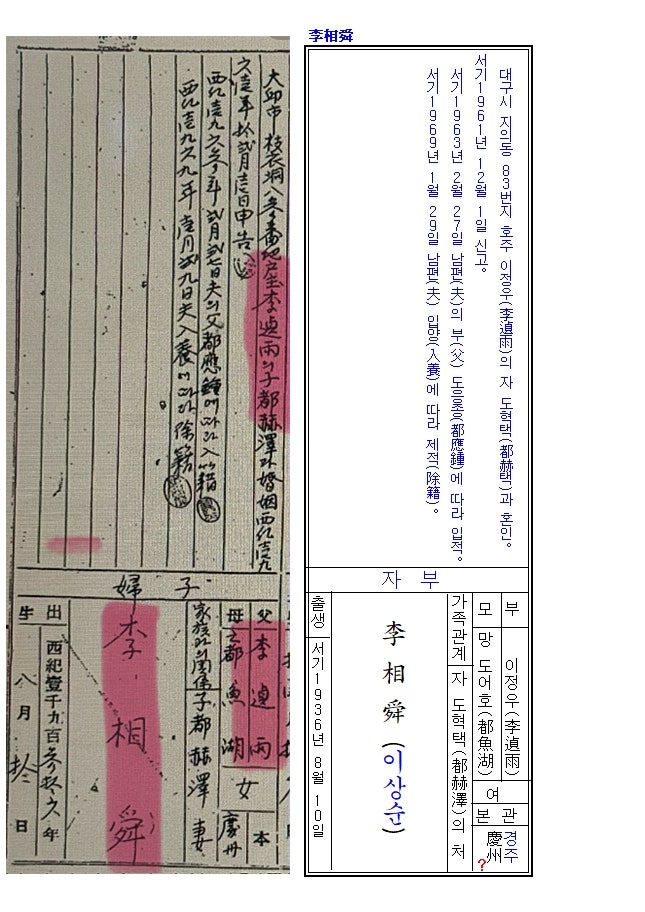 李相舜
大邱市 枝衣洞 八參番地戶主李湞雨의子都赫澤과婚姻西紀壹九
六壹年拾貳月壹日申告
西紀壹九六參年貳月貳七日夫의父都應鍾에따라入籍
西紀壹九六九年壹月貳九日夫入養에따라除籍
婦 子
父 李湞雨
母 亡都魚湖
女
本 慶州
家族과의關係 子都赫澤 妻
李相舜
出生
西紀壹千九百參拾六年
八月 拾日
대구시 지의동 83번지 호주 이정우(李湞雨)의 자 도혁택(都赫택)과 혼인.
서기1961년 12월 1일 신고.
서기1963년 2월 27일 남편(夫)의 부(父) 도응종(都應鍾)에 따라 입적.
서기1969년 1월 29일 남편(夫) 입양(入養)에 따라 제적(除籍).
자 부
부 이정우(李湞雨)
모 망 도어호(都魚湖)
여
본 관
경주
慶州
?
가족관계 자 도혁택(都赫澤)의 처
李相舜(이상순)
출생 서기1936년 8월 10일